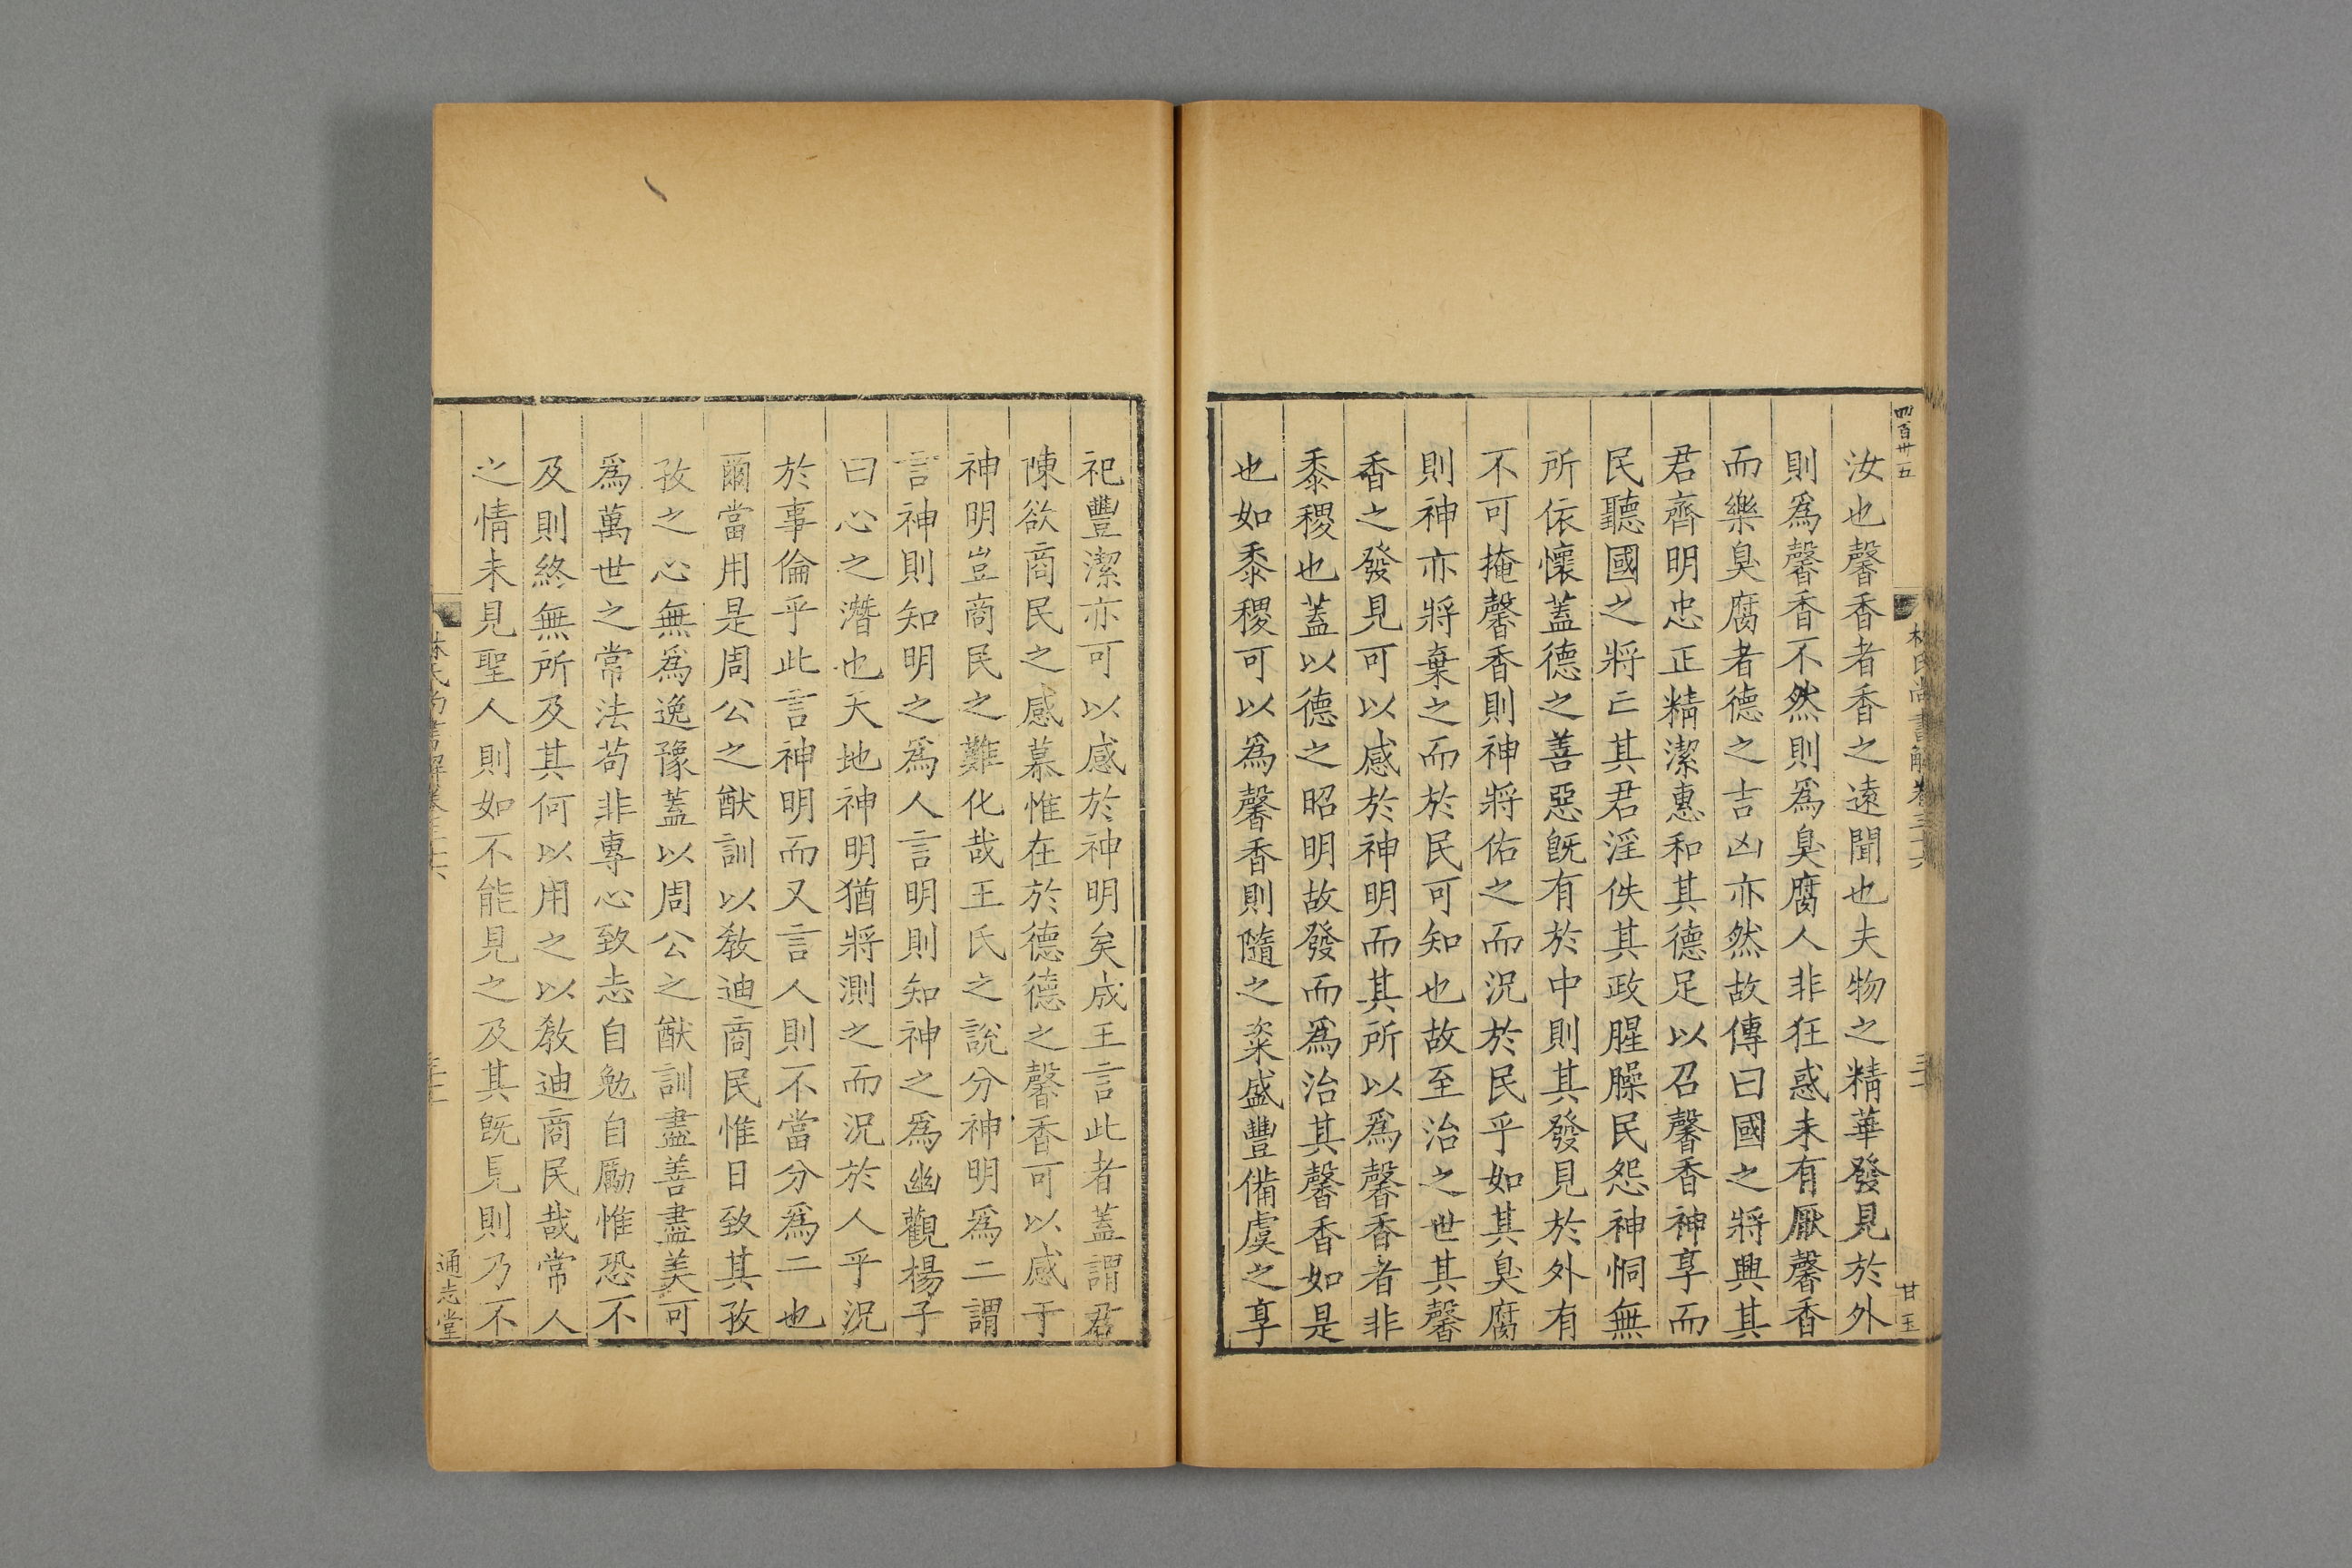 四百卅五
林氏尚書解卷三十六
甘玉
汝也馨香者香之遠聞也夫物之精華發見於外
則為馨香不然則為臭腐人非狂惑未有厭馨香
而樂臭腐者德之吉凶亦然故傳曰國之將興其
君齊明忠正精潔惠和其德足以召馨香神享而
民聽國之將亡其君淫佚其政腥臊民怨神恫無
所依懷蓋德之善惡旣有於中則其發見於外有
不可掩馨香則神將佑之而況於民乎如其臭腐
則神亦將棄之而於民可知也故至治之世其馨
香之發見可以感於神明而其所以為馨香者非
黍稷也蓋以德之昭明故發而為治其馨香如是
也如黍稷可以為馨香則隨之粢盛豐備虞之享
祀豐潔亦可以感於神明矣成王言此者蓋謂君
陳欲商民之感慕惟在於德德之馨香可以感于
神明豈商民之難化哉王氏之說分神明為二謂
言神則知明之為人言明則知神之為幽觀楊子
曰心之潛也天地神明猶將測之而況於人乎況
於事倫乎此言神明而又言人則不當分為二也
爾當用是周公之猷訓以敎迪商民惟日致其孜
孜之心無為逸豫蓋以周公之猷訓盡善盡美可
為萬世之常法苟非專心致志自勉自勵惟恐不
及則終無所及其何以用之以敎迪商民哉常人
之情未見聖人則如不能見之及其旣見則乃不
林氏尚書解卷三十六
通志堂